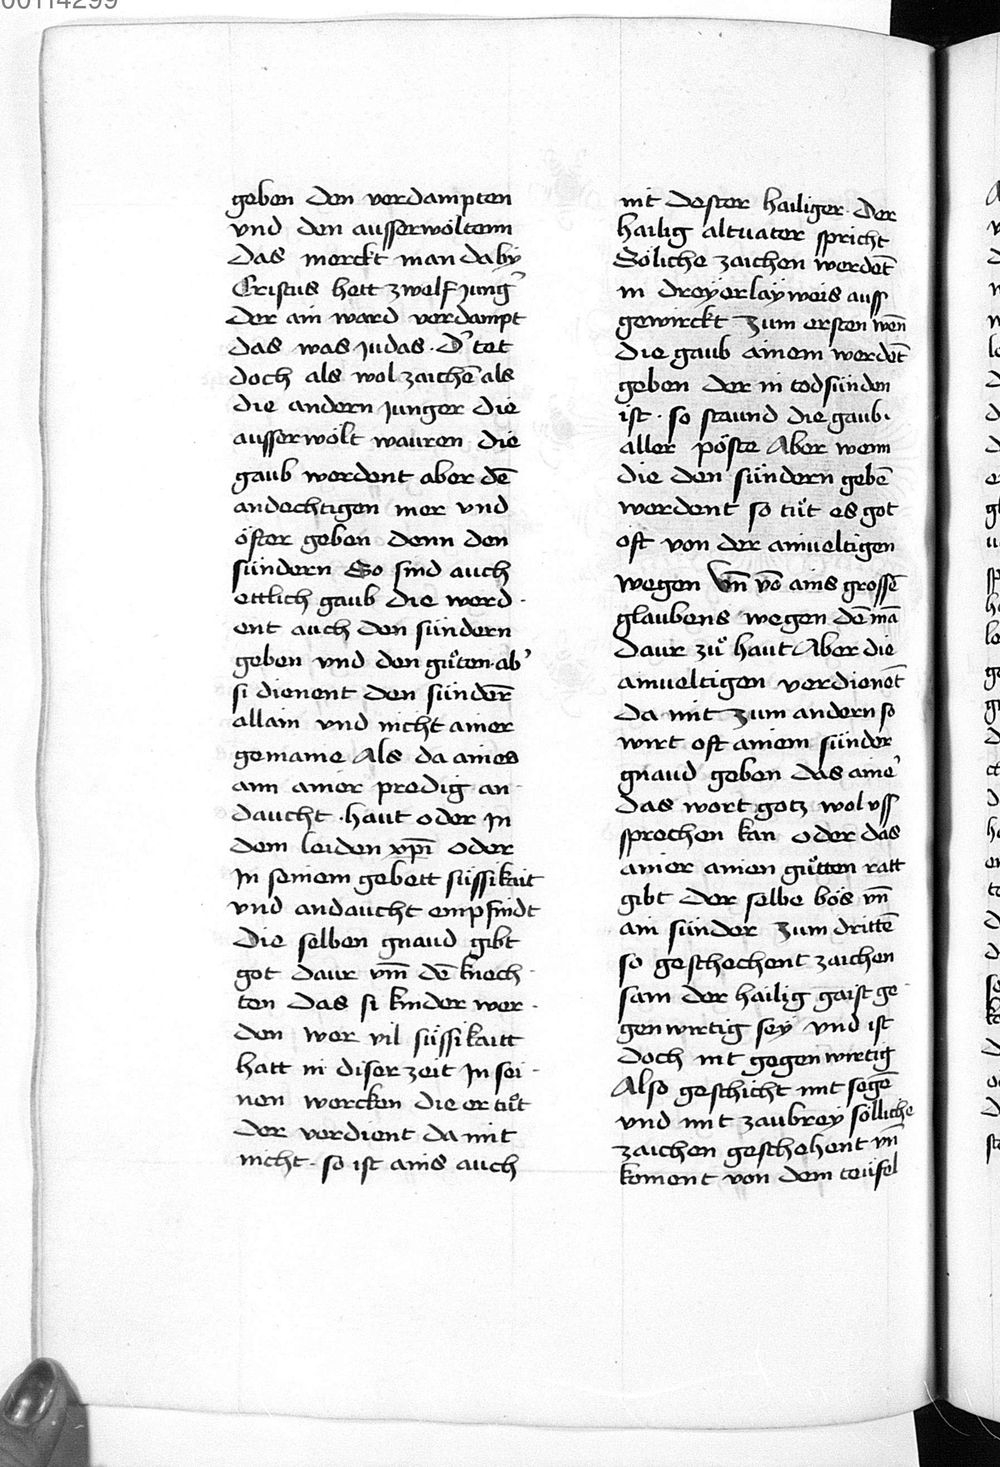 00114299
geben den verdampten
vnd den ausserwöltenn
das merckt man daby
Cristus hett zwelf jung᾽
der ain ward verdampt
das was judas · d᾽ tet
doch als wol zaichē als
die andern junger die
ausserwölt wauren die
gaub werdent aber dē
andechtigen mer vnd
öfter geben denn den
sündern So sind auch
ettlich gaub die werd-
ent auch den sündern
geben vnd den gůten · ab᾽
si dienent den sünder̄
allain vnd nicht ainer
gemaine Als da aines
ann ainer predig an-
daucht · haut oder jn
dem leiden xp̄i oder
jn seinem gebett süssikait
vnd andaucht empfindt
Die selben gnaud gibt
got daur vm̄ dē knech-
ten das si kinder wer-
den wer vil süssikaitt
hatt in diser zeit jn sei-
nen wercken die er tůt
der verdient da mit
nicht · so ist ains auch
nit dester hailiger · der
hailig altuater spricht
Söliche zaichen werdēt
in dreyerlay weis auss
gewirckt zum ersten wēn
die gaub ainem werdēt
geben der in todsünden
ist · so staund die gaub
aller pöste Aber wenn
die den sündern gebē
werdent so tůt es got
oft von der ainueltigen
wegen vn̄ vō ains grossē
glaubens wegen dē mā
daur zů haut Aber die
ainueltigen verdienēt
da mit zum andern so
wirt oft ainem sünder
gnaud geben das aine᾽
das wort gotz wol vss
sprechen kan oder das
ainer ainen gůtten ratt
gibt der selbe bös vn̄
ain sünder zum drittē
so geschechent zaichen
sam der hailig gaist ge-
genwirtig sey vnd ist
doch nit gegenwirtig
Also geschicht mit segē
vnd mit zaubrey sölliche
zaichen geschehent vn̄
koment von dem teüfel